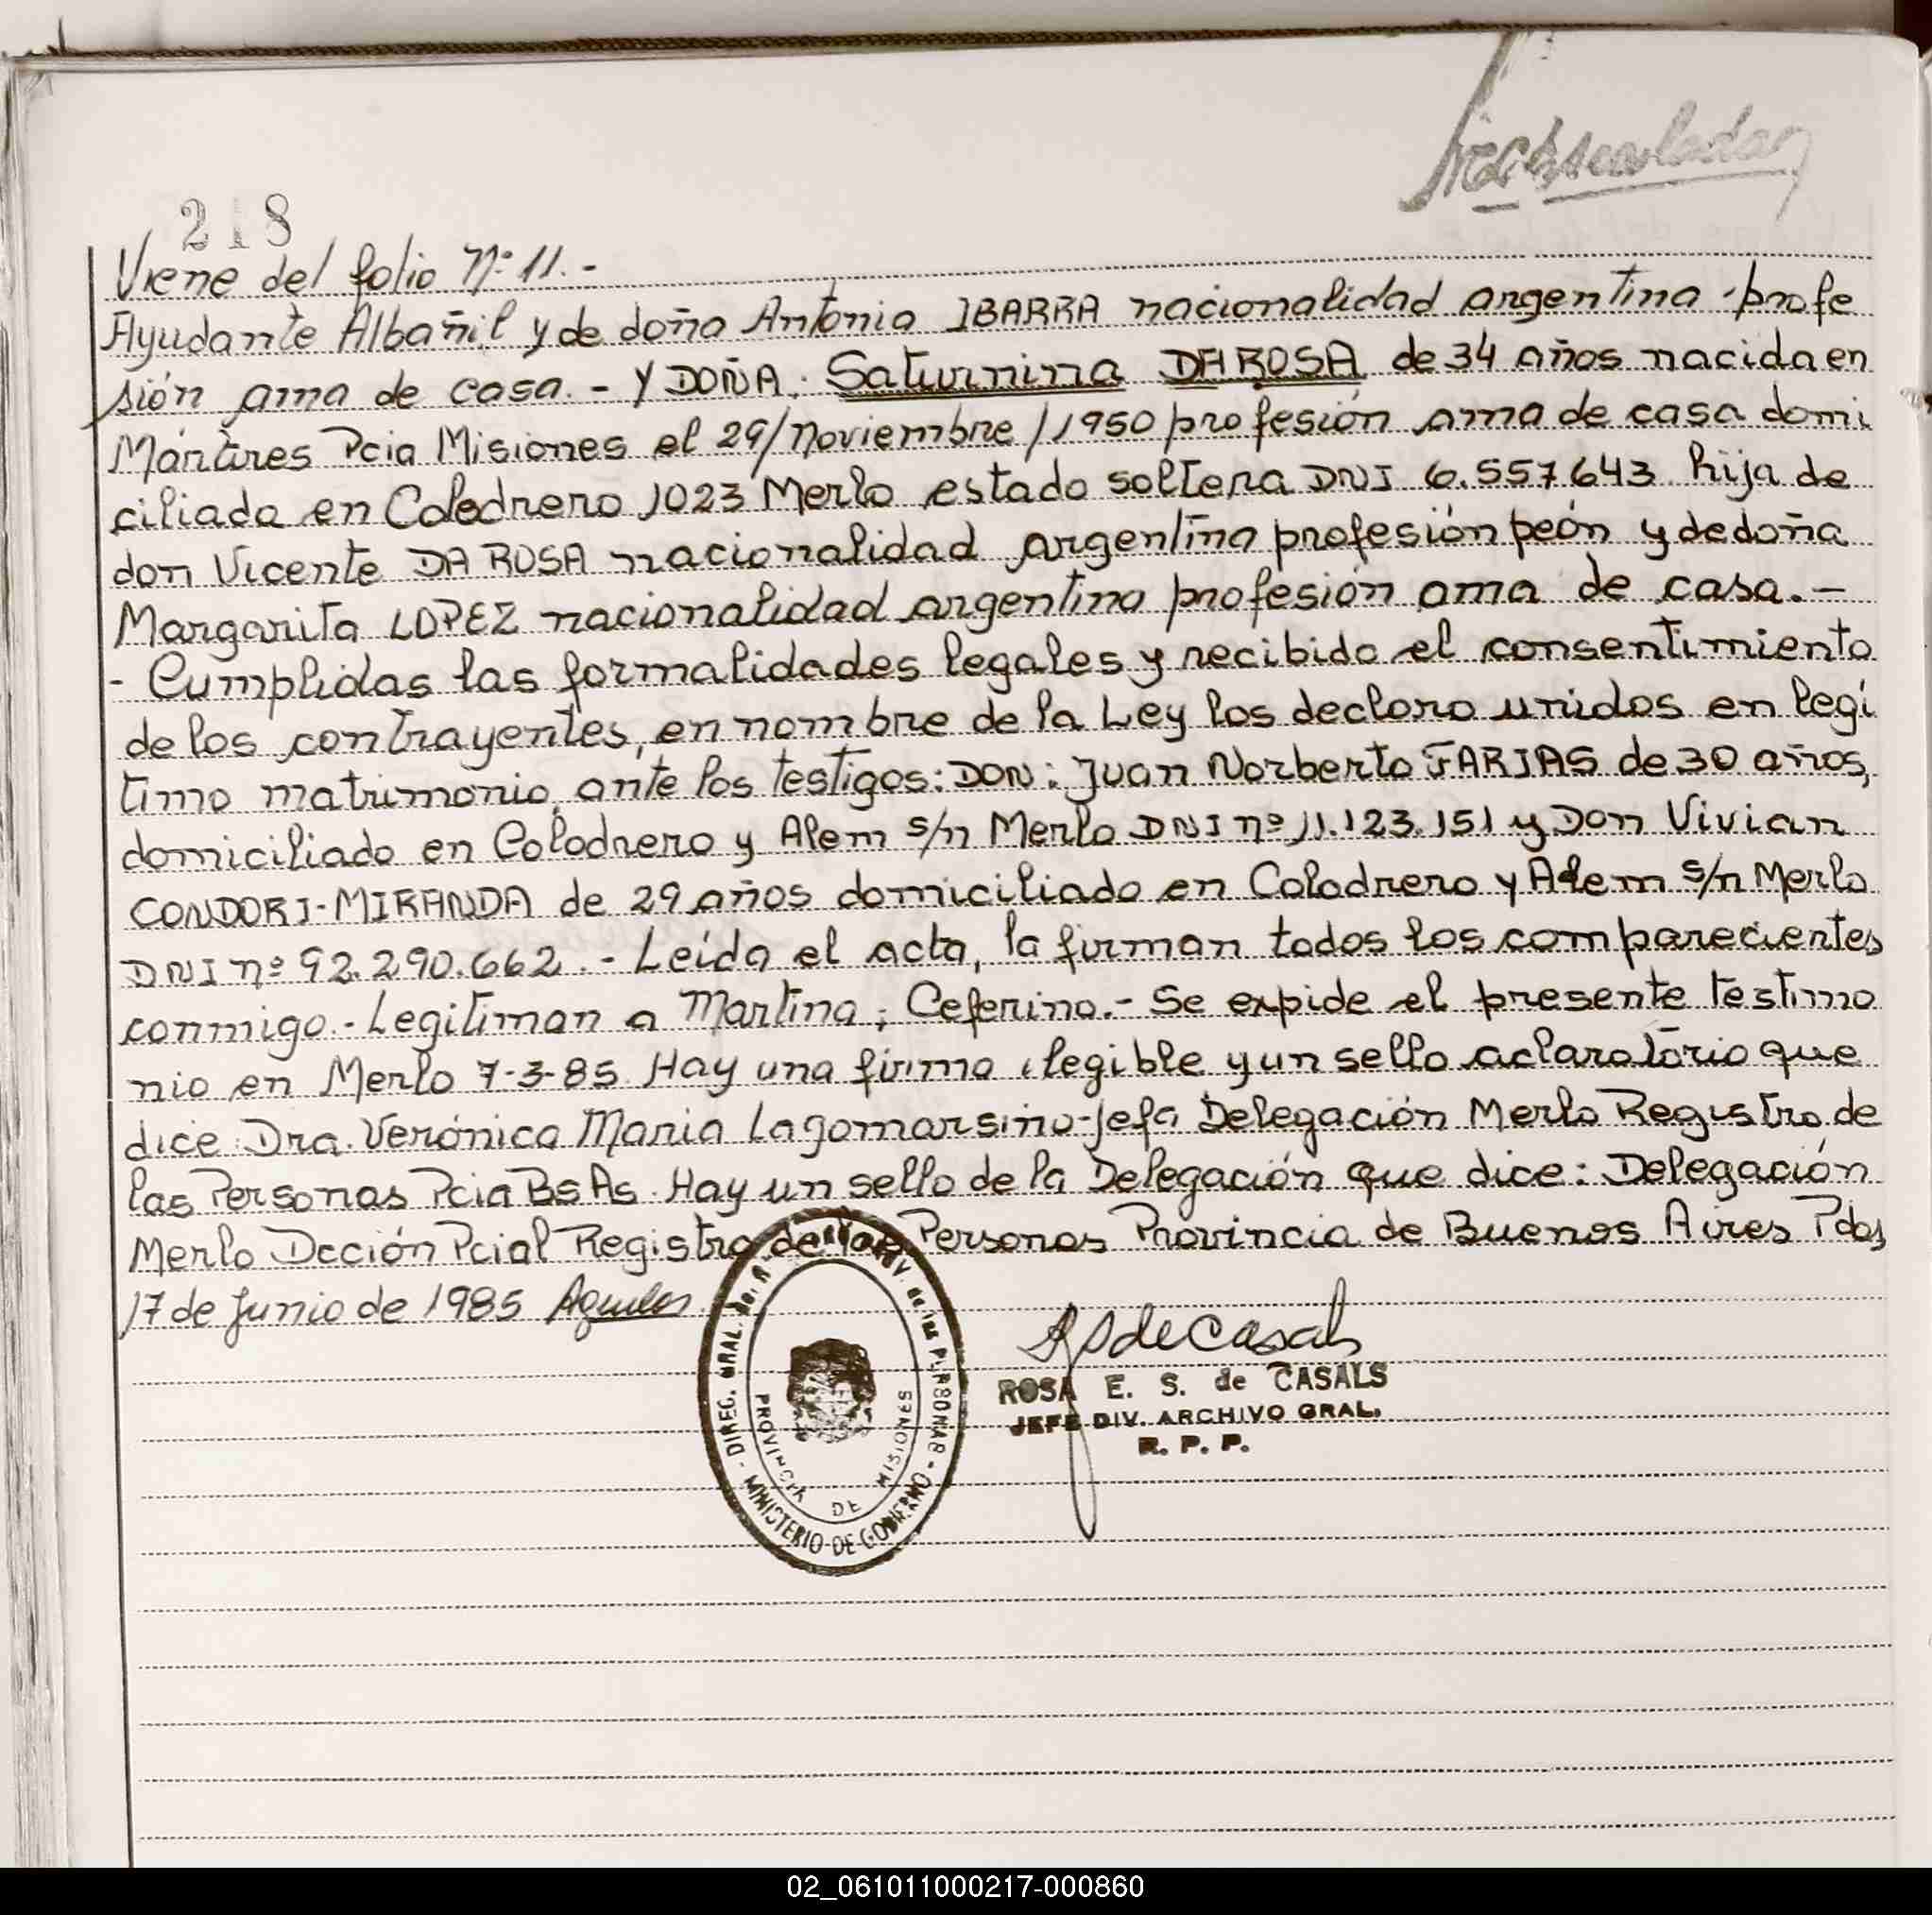 218
Viene del folio Nº 11. -
Ayudante Albañil y de doña Antonia IBARRA nacionalidad argentina profe
sión ama de casa. - Y DOÑA. Saturnina DA ROSA de 34 años nacida en
Mártires Pcia Misiones el 29/Noviembre/1950 profesión ama de casa domi
ciliada en Colodrero 1023 Merlo estado soltera DNI 6.557.643 hija de
don Vicente DA ROSA nacionalidad argentina profesión peón y de doña
Margarita LOPEZ nacionalidad argentina profesión ama de casa. -
- Cumplidas las formalidades legales y recibido el consentimiento
de los contrayentes, en nombre de la Ley los declaro unidos en legí
timo matrimonio, ante los testigos: DON: Juan Norberto FARIAS de 30 años,
domiciliado en Colodrero y Alem s/n Merlo DNI nº 11.123.151 y Don Vivian
CONDORI-MIRANDA de 29 años domiciliado en Colodrero y Alem s/n Merlo
DNI nº 92.290.662. - Leída el acta, la firman todos los comparecientes
conmigo. - Legitiman a Martina; Ceferino. - Se expide el presente testimo
nio en Merlo 7-3-85 Hay una firma ilegible y un sello aclaratorio que
dice: Dra. Verónica Maria Lagomarsino-Jefa Delegación Merlo Registro de
las Personas Pcia Bs As. Hay un sello de la Delegación que dice: Delegación
Merlo Dcción Pcial Registro de las Personas Provincia de Buenos Aires Pdas
17 de Junio de 1985
ROSA E. S. de CASALS
JEFE DIV. ARCHIVO GRAL.
R. P. P.
MINISTERIO DE GOBIERNO
PROVINCIA DE MISIONES
02_061011000217-000860